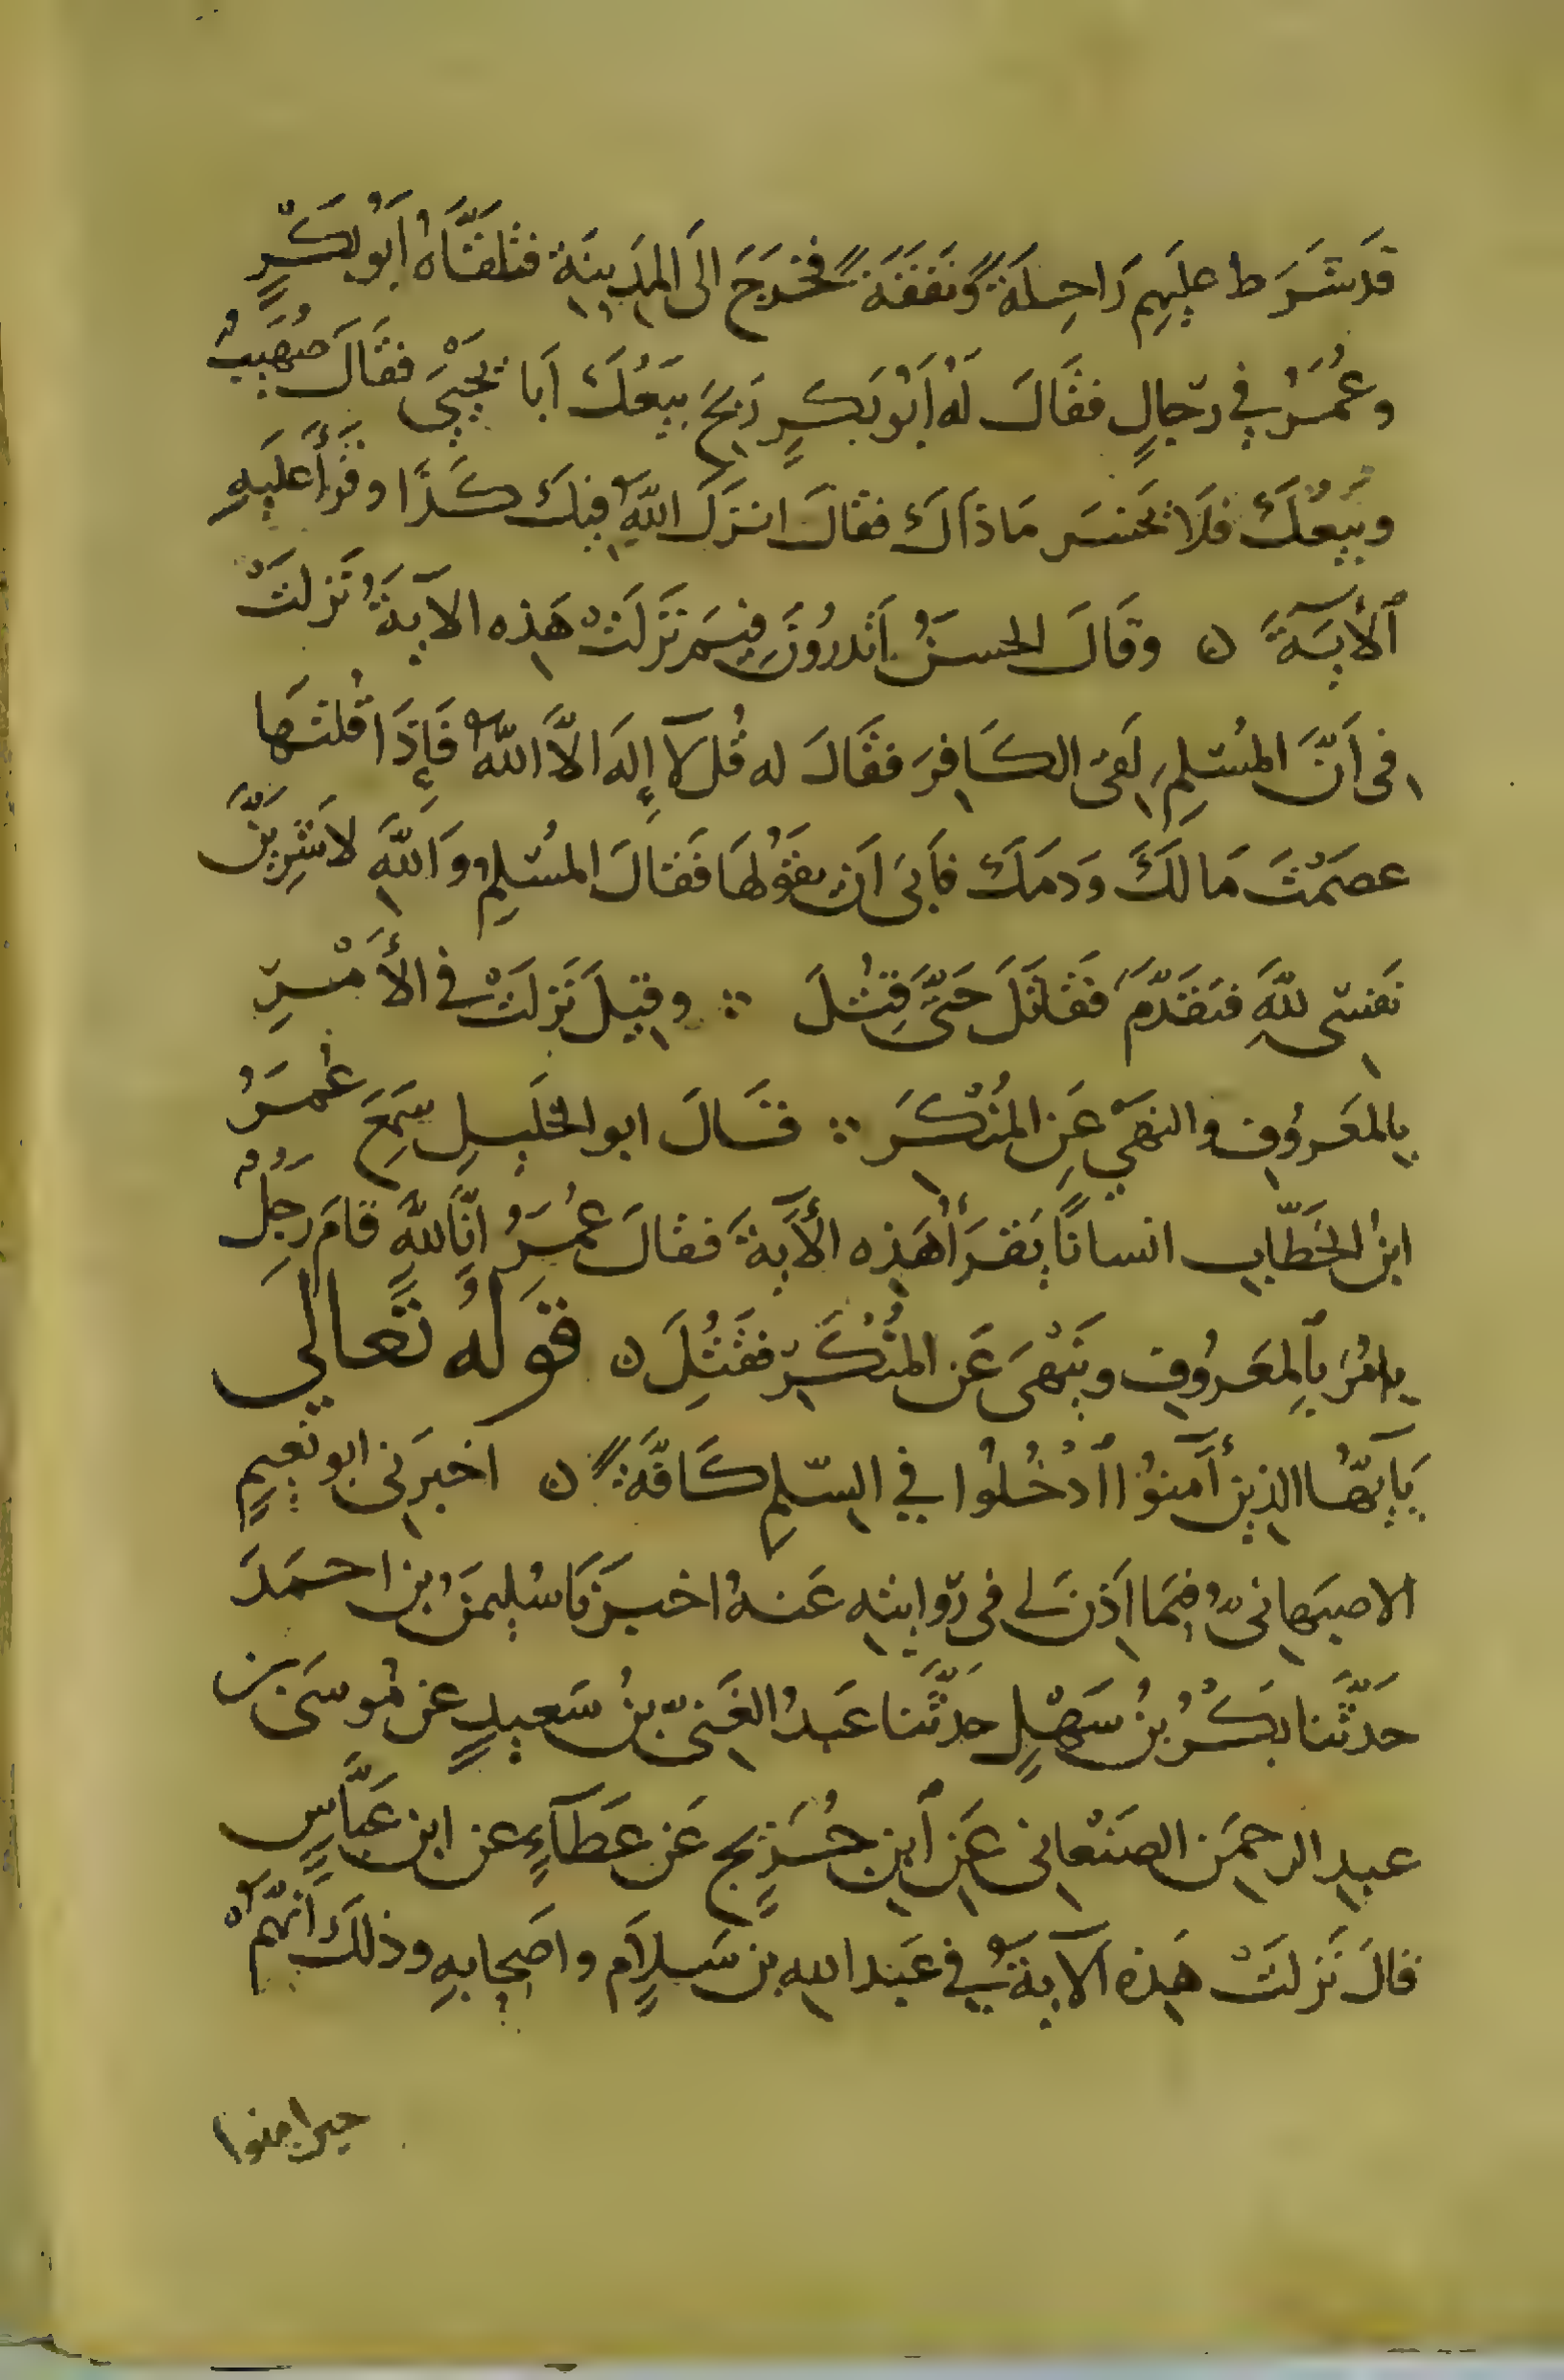 قد شَرَط عليهم رَاحِلَةً ونَفَقَةً فخرَجَ الَى المدَينَةِ فتلقَّاهُ أَبُو بَكْرٍ
وعُمَرُ في رجالٍ فقَالَ لَهُ أَبُو بَكرٍ رَبحَ بيَعُكَ أَبا يَحْيَى فقَالَ صُهَيبٌ
وبَيعُكَ فلَا تخسَر مَا ذَاكَ فقَالَ انزَلَ اللَّهُ فيكَ كَذَا وقَرَأَ عليهِ
ٱلأيَةَ ن وقَالَ الحسَنُ اَتَدرُونَ فيمَ نَزَلَتْ هَذِه الآيَةُ نَزلَتْ
في أَنَّ المُسْلِمَ لَقِىَ الكَافِرَ فقَالَ له قُل لآ إِلَهَ الاَّ اللَّهُ فَإِذَا قُلتَهَا
عصَمْتَ مَالَكَ وَدَمَكَ فأَبَى اَن يقَوُلهَا فَقالَ المُسْلِمُ وَاللَّهِ لاَشْرِيَنَّ
نَفسِى للَّهِ فتَقَدَّمَ فَقَاتَلَ حَتَّى قُتِلَ ∴ وقيلَ نَزلَتْ في الأَمْرِ
بالمَعَروُفِ والنهَىِ عَنِ المُنْكَرَ ∴ قَالَ ابو الخَليلِ سَمِعَ عُمَرُ
ابنُ الخَطَّابِ انسانًا يَقرَأُ هَذِه الأَيةَ فقالَ عُمَرُ انَّا لِلَّهِ قامَ رَجُلٌ
يامُرُ بِالمَعَروُفِ وينَهْىَ عَنِ المُنْكَرِ فقُتِلَ ن قَولهُ تعَالي
يَأيُّهَا الذينَ أَمَنوُا ادْخُلُوا في السّلمِ كَافَّةً ن اخبرَنى ابو نعَيمٍ
الاصبَهانىُّ فيمَا اَذنَ لى فى رّوايتِه عَنهُ اخبرَنَا سُليمَنُ بن احمَدَ
حَدَّثَنا بَكْرُ بنُ سَهْلٍ حدَثَّنا عَبدُ الغَنىّ بنُ سَعيدٍ عن مُوسَى بن
عبدِ الرحمَنِ الصَنْعانى عَنِ ٱبنِ جُرَيجٍ عَن عَطَآءٍ عن ابن عَبَّاسٍ
قالَ نَزلَتْ هَذِه الآيةُ في عَبد الله بن سَلاَم واصَحابهِ وذلكَ أَنهَّمُ
حين امنوا